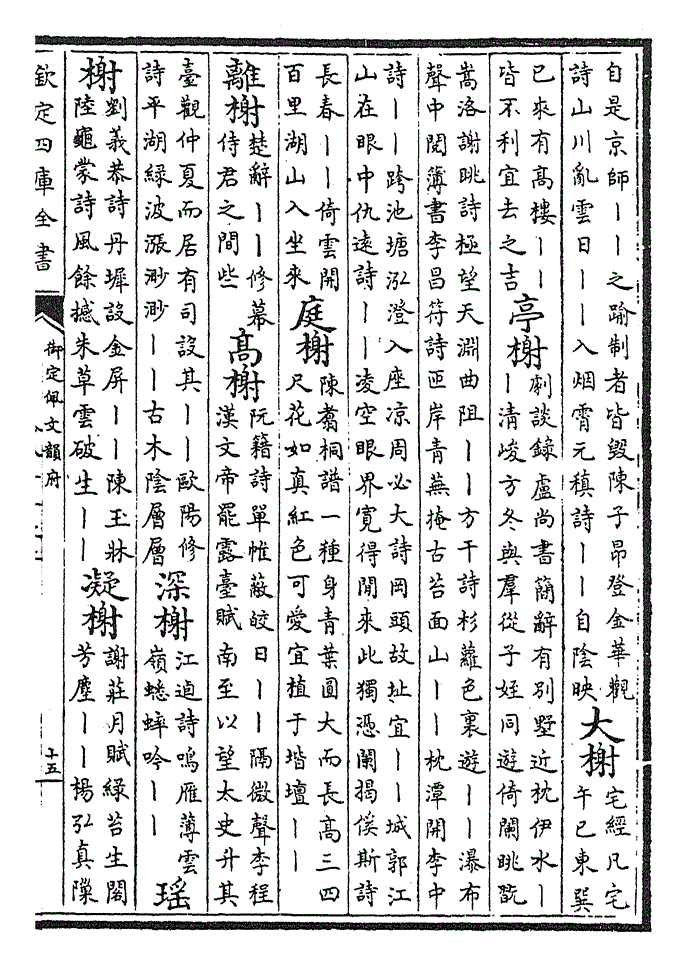 自是京師丨丨之踰制者皆毀陳子昂登金華觀
詩山川亂雲日丨丨入烟霄元稹詩丨丨自陰映
大榭
宅經凡宅
午巳東巽
巳來有高樓丨丨
皆不利宜去之吉
亭榭
劇談錄盧尚書簡辭有別墅近枕伊水丨
丨清峻方冬與羣從子姪同遊倚闌眺翫
嵩洛謝眺詩極望天淵曲阻丨丨方干詩杉蘿色裏遊丨丨瀑布
聲中閱簿書李昌符詩匝岸青蕪掩古苔面山丨丨枕潭開李中
詩丨丨跨池塘泓澄入座凉周必大詩岡頭故址宜丨丨城郭江
山在眼中仇遠詩丨丨凌空眼界寬得閒來此獨憑闌揭傒斯詩
長春丨丨倚雲開
百里湖山入坐來
庭榭
陳翥桐譜一種身青葉圓大而長高三四
尺花如真紅色可愛宜植于堦壇丨丨
離榭
楚辭丨丨修幕
侍君之間些
高榭
阮籍詩單帷蔽皎日丨丨隔微聲李程
漢文帝罷露臺賦南至以望太史升其
臺觀仲夏而居有司設其丨丨歐陽修
詩平湖綠波漲渺渺丨丨古木陰層層
深榭
江逌詩鳴雁薄雲
嶺蟋蟀吟丨丨
瑶
榭
劉義恭詩丹墀設金屏丨丨陳王牀
陸龜蒙詩風餘撼朱草雲破生丨丨
凝榭
謝莊月賦綠苔生閣
芳塵丨丨楊弘真隟
欽定四庫全書
御定佩文韻府
十五